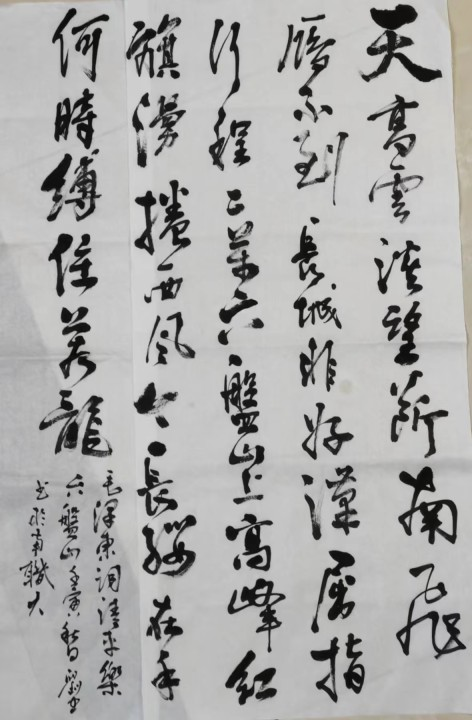 天高雲淡望斷南飛
雁不到長城非好漢屈指
行程二萬六盤山上高峰紅
旗漫捲西風今日長纓在手
何時縛住蒼龍
毛澤東詞清平樂
六盤山壬寅
書於南職大